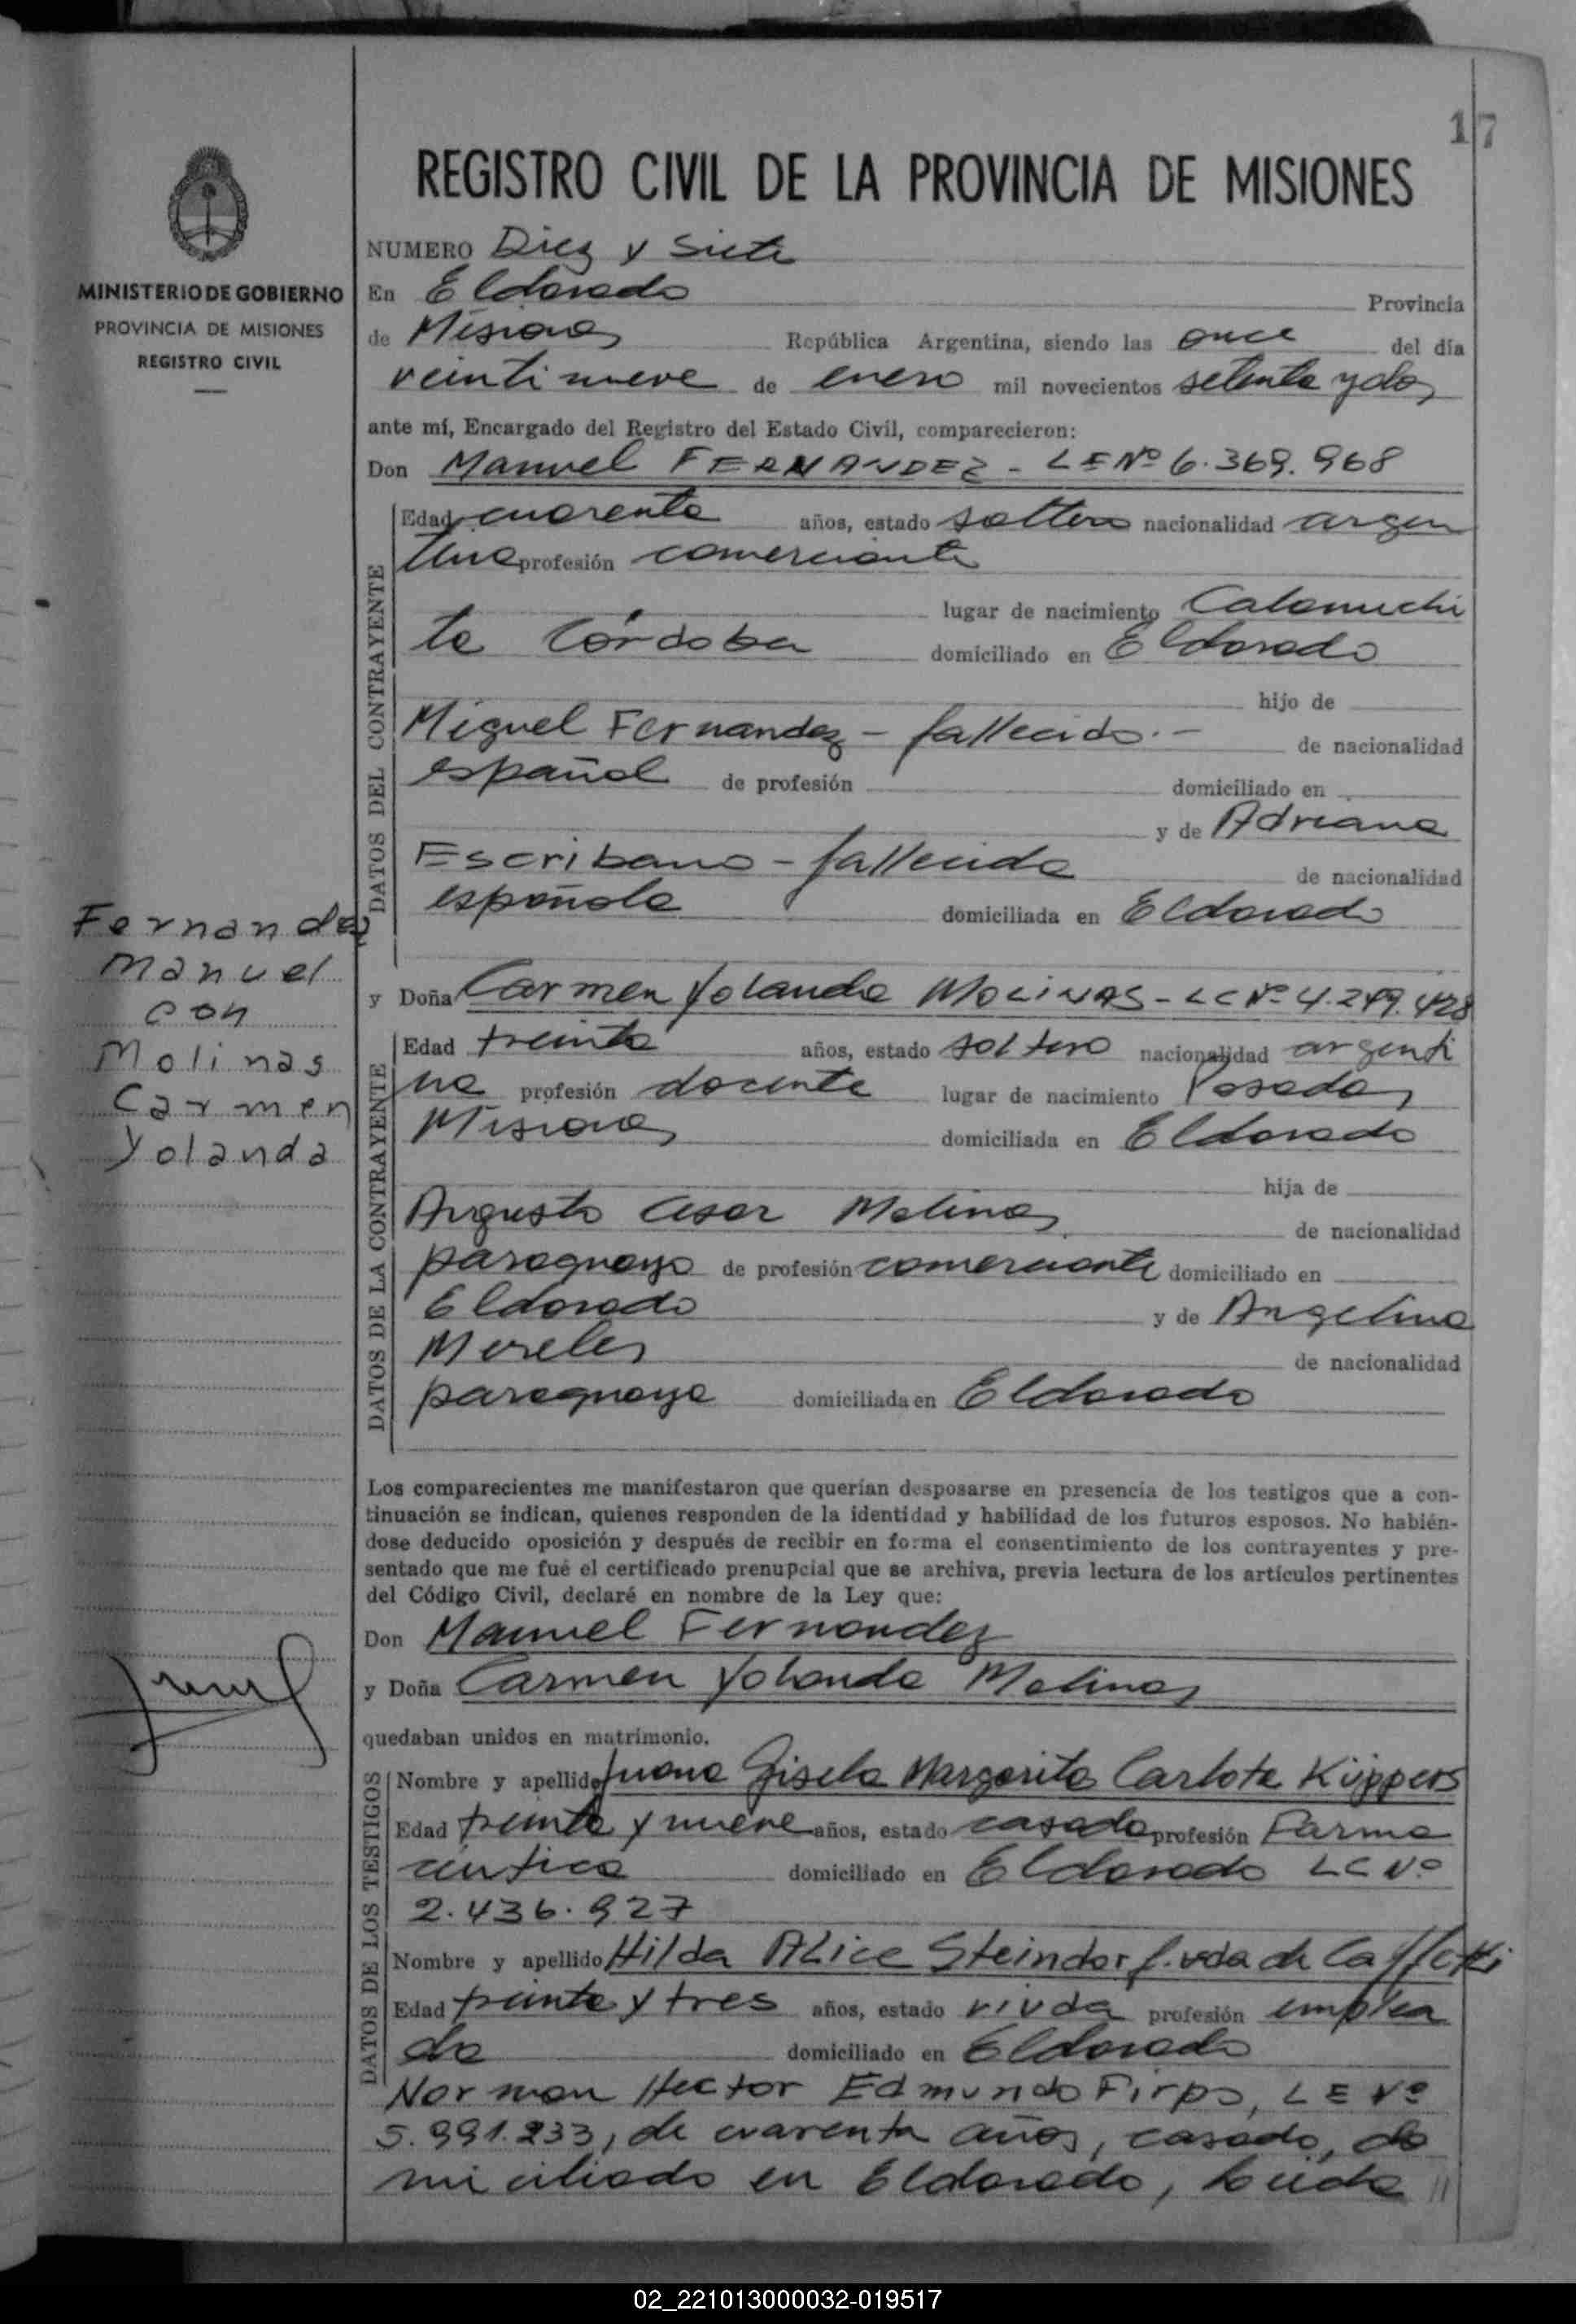 17
REGISTRO CIVIL DE LA PROVINCIA DE MISIONES
MINISTERIO DE GOBIERNO
PROVINCIA DE MISIONES
REGISTRO CIVIL
NUMERO Diez y Siete
En Eldorado Provincia
de Misiones República Argentina, siendo las once del día
veintinueve de enero mil novecientos setenta y dos
ante mí, Encargado del Registro del Estado Civil, comparecieron:
Don Manuel FERNANDEZ - LE Nº 6.369.968
DATOS DEL CONTRAYENTE
Edad cuarenta años, estado soltero nacionalidad argen
tina profesión comerciante
lugar de nacimiento Calamuchi
ta Córdoba domiciliado en Eldorado
hijo de
Miguel Fernandez - fallecido.- de nacionalidad
español de profesión domiciliado en
y de Adriana
Escribano - fallecida de nacionalidad
española domiciliada en Eldorado
Fernandez
Manuel
con
Molinas
Carmen
Yolanda
y Doña Carmen Yolanda MOLINAS - LC Nº 4.249.428
DATOS DE LA CONTRAYENTE
Edad treinta años, estado soltera nacionalidad argenti
na profesión docente lugar de nacimiento Posadas
Misiones domiciliada en Eldorado
hija de
Augusto Cesar Molinas de nacionalidad
paraguayo de profesión comerciante domiciliado en
Eldorado y de Angelina
Mereles de nacionalidad
paraguaya domiciliada en Eldorado
Los comparecientes me manifestaron que querían desposarse en presencia de los testigos que a con-
tinuación se indican, quienes responden de la identidad y habilidad de los futuros esposos. No habién-
dose deducido oposición y después de recibir en forma el consentimiento de los contrayentes y pre-
sentado que me fué el certificado prenupcial que se archiva, previa lectura de los artículos pertinentes
del Código Civil, declaré en nombre de la Ley que:
Don Manuel Fernandez
y Doña Carmen Yolanda Molinas
quedaban unidos en matrimonio.
DATOS DE LOS TESTIGOS
Nombre y apellido Juana Gisela Margarita Carlota Küppers
Edad treinta y nueve años, estado casada profesión Farma
ceutica domiciliado en Eldorado LC Nº
2.436.927
Nombre y apellido Hilda Alice Steindorf. vda de
Edad treinta y tres años, estado viuda profesión emplea
da domiciliado en Eldorado
Norman Hector Edmundo Firpo, LE Nº
5.991.233, de cuarenta años, casado, do
miciliado en Eldorado, leida //
02_221013000032-019517